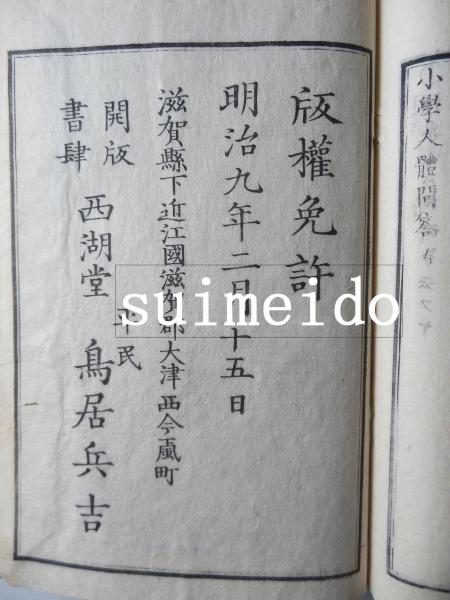 小學人體問答
版權免許
明治九年二月十五日
滋賀縣下近江國滋賀郡大津西今颪町
開版
書肆
西湖堂
平民
鳥居兵吉
suimeido